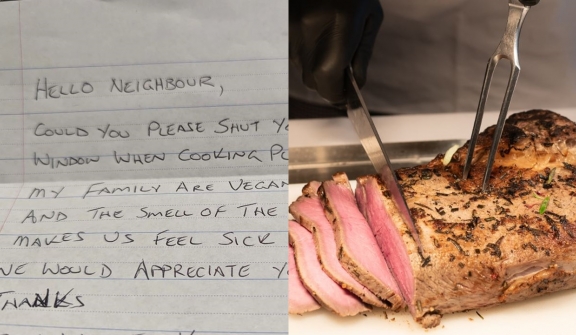 HELLO NEIGHBOUR,
COULD YOU PLEASE SHUT
WINDOW WHEN COOKING
MY FAMILY ARE VEGAN
AND THE SMELL OF THE
MAKES US FEEL SICK
WE WOULD APPRECIATE
THANKS